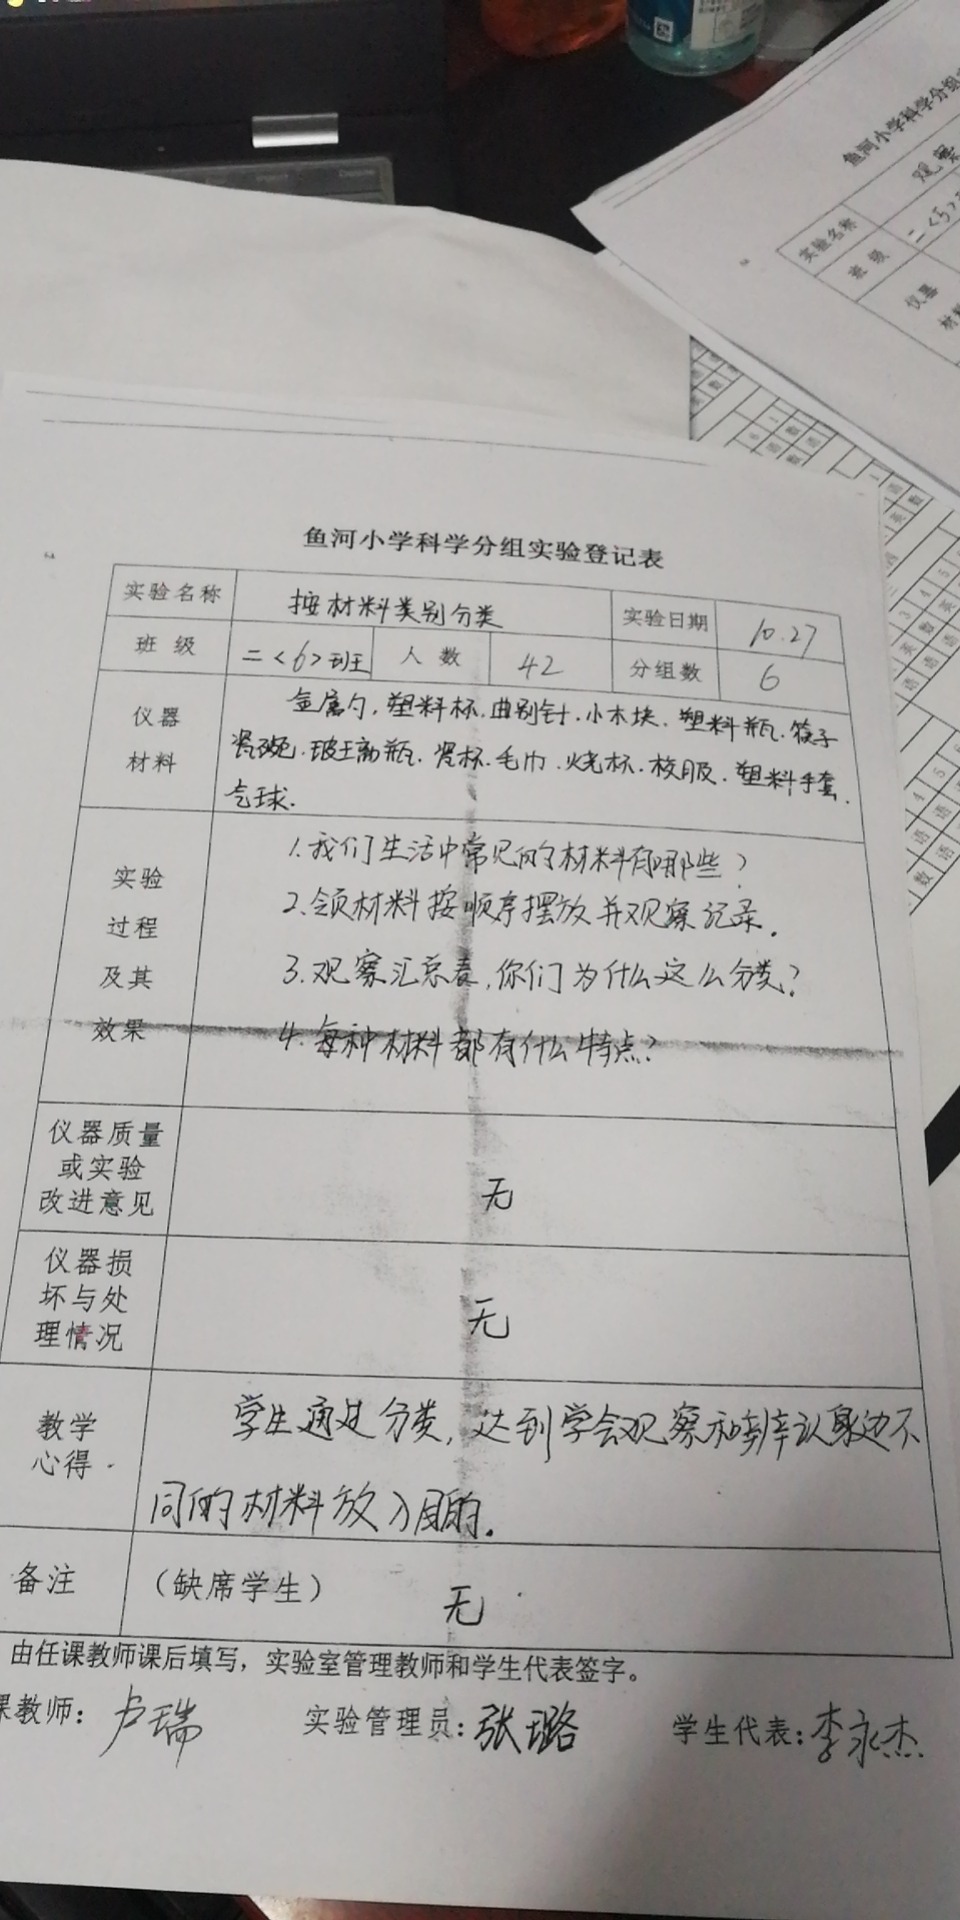 鱼河小学科学分组
实验名称 观察
班级 二<5>
仪器
鱼河小学科学分组实验登记表
实验名称 按材料类别分类 实验日期 10.27
班级 二<6>班 人数 42 分组数 6
仪器材料 金属勺.塑料杯.曲别针.小木块.塑料瓶.筷子
瓷碗.玻璃瓶.瓷杯.毛巾.烧杯.校服.塑料手套.
气球.
实验过程及其效果
1.我们生活中常见的材料有哪些?
2.领材料按顺序摆放并观察记录.
3.观察汇总表,你们为什么这么分类?
4.每种材料都有什么特点?
仪器质量
或实验
改进意见 无
仪器损
坏与处
理情况 无
教学
心得
学生通过分类,达到学会观察和辨认身边不
同的材料 目的.
备注 (缺席学生) 无
由任课教师课后填写,实验室管理教师和学生代表签字。
课教师: 卢瑞 实验管理员: 张璐 学生代表: 李永杰